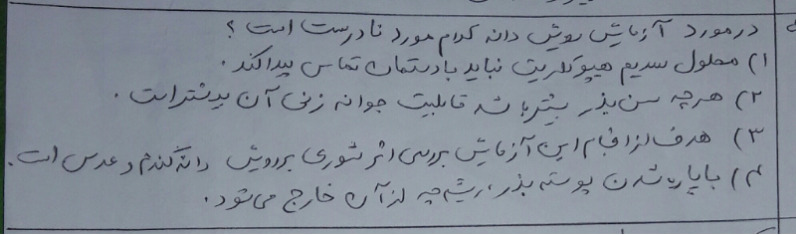 در مورد آزمایش رویش دانه کدام مورد نادرست است ؟
۱) محلول سدیم هیپوکلریت نباید با دستمان تماس پیدا کند .
۲) هرچه سن بذر بیشتر باشد قابلیت جوانه زنی آن بیشتر است .
۳) هدف از انجام این آزمایش بررسی اثر شوری بر رویش دانه گندم و عدس است .
۴) با پاره شدن پوسته بذر ، ریشه چه از آن خارج می شود .